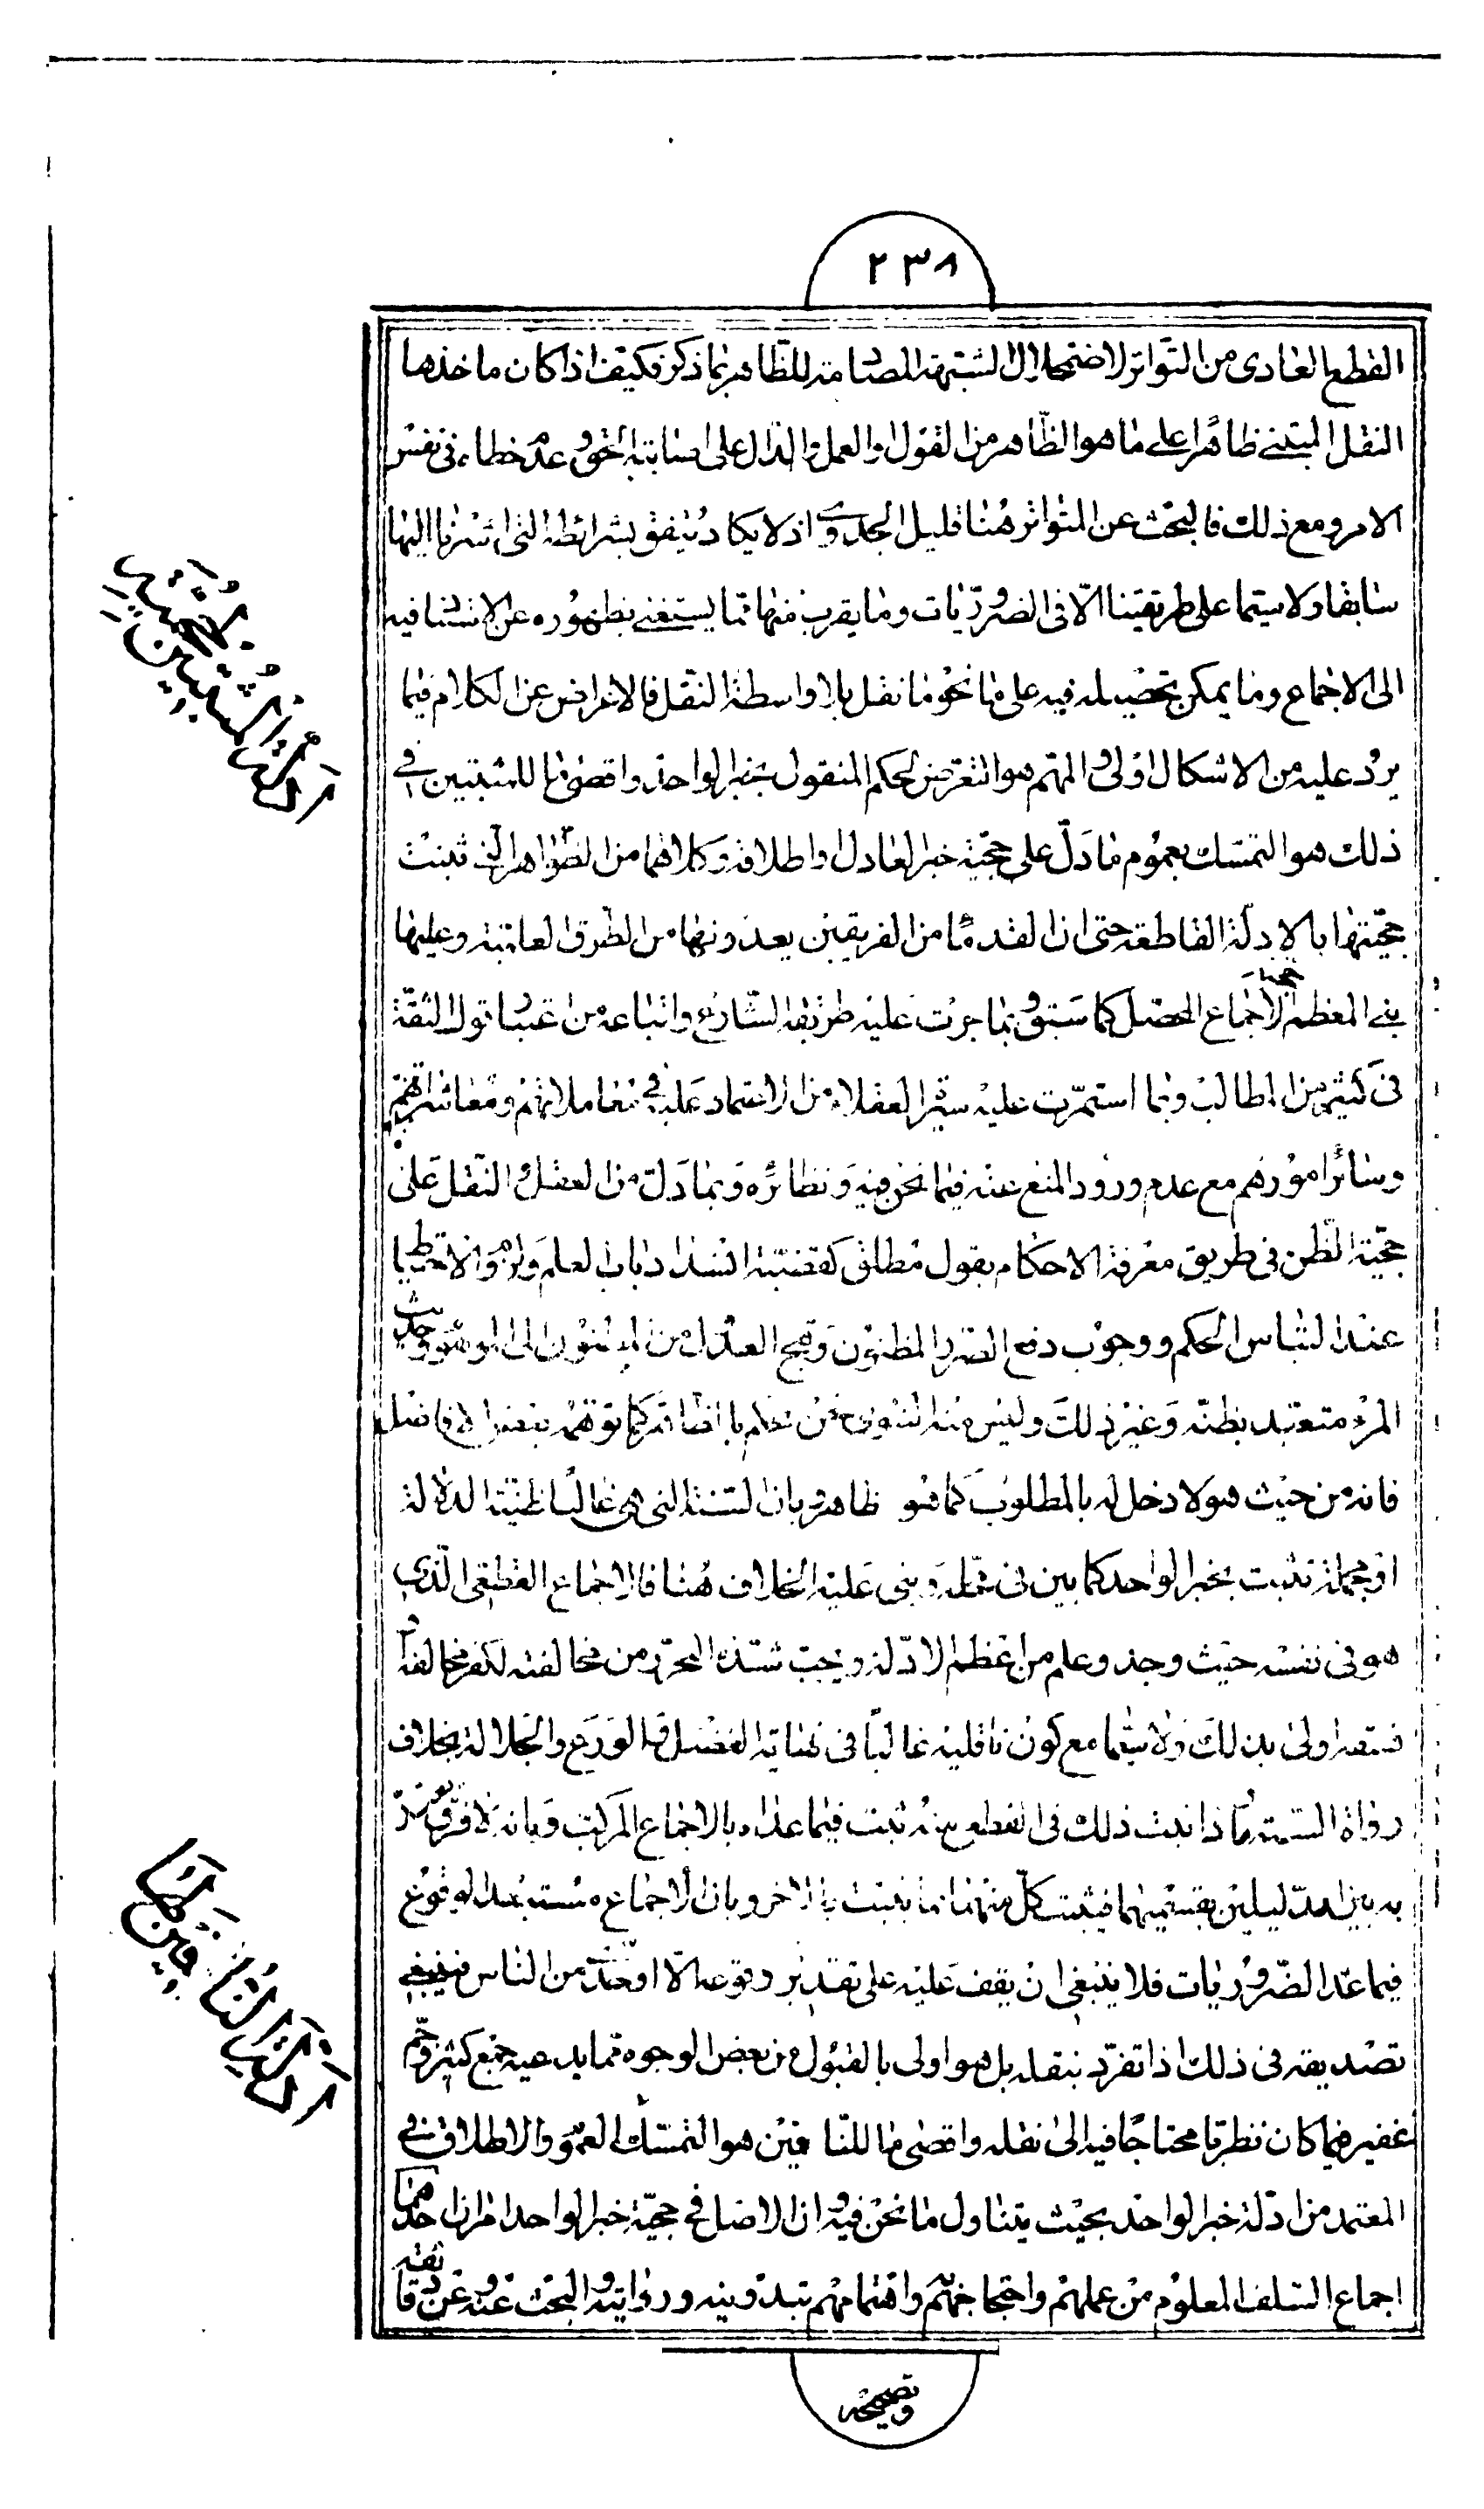 ٢٣٨
القطع العادى من التواتر لاضمحلال الشبهة المصادمة للظاهر بما ذكر فكيف اذا كان ماخذها
النقل المبتنى ظاهرا على ما هو الظاهر من القول والعمل والدال على اصابته الحق وعدم خطاءه فى نفس
الامر ومع ذلك فالبحث عن التواتر هنا قليل الجدوى اذ لا يكاد يتفق بشرائطه التى اشرنا اليها
سابقا ولا سيما على طريقتنا الّا فى الضروريات وما يقرب منها مما يستغنى بظهوره عن الاستناد فيه
الى الاجماع وما يمكن تحصيله فيه على نحو ما نقل بلا واسطة النقل فالاعراض عن الكلام فيما
يرد عليه من الاشكال اولى والمهم هو التعرض لحكم المنقول بخبر الواحد واقصى ما للمثبتين فى
ذلك هو التمسك بعموم ما دلّ على حجّية خبر العادل واطلاقه وكلاهما من الظواهر التى ثبتت
حجّيتها بالادلّة القاطعة حتى ان القدماء من الفريقين يعدونها من الطرق العلمية وعليها
بنى المعظم حجية الاجماع المحصل كما سبق وبما جرت عليه طريقة الشارع واتباعه من اعتبار قول الثقة
فى كثير من المطالب وبما استمرّت عليه سيرة العقلاء من الاعتماد عليه فى معاملاتهم ومعاشراتهم
وسائر امورهم مع عدم ورود المنع عنه فيما نحن فيه ونظائره وبما دلّ من العقل والنقل على
حجّية الظن فى طريق معرفة الاحكام بقول مطلق كقضية انسداد باب العلم ولزوم الاحتياط
عند التباس الحكم ووجوب دفع الضرر المظنون وقبح العدول من المظنون الى الموهوم وحديث
المرء متعبد بظنّه وغير ذلك وليس منه نحن نحكم بالظاهر كما توهّمه بعض الافاضل
فانه من حيث هو لا دخل له بالمطلوب كما هو ظاهر وبان السنة التى هى غالبا ظنية الدلالة
او مجملة تثبت بخبر الواحد كما بين فى محله وبنى عليه الخلاف هنا فالاجماع القطعى الّذى
هو فى نفسه حيث وجد وعلم من اعظم الادلّة ويجب شدّة التحرّز من مخالفته لكفر مخالفه
فنقله اولى بذلك ولا سيما مع كون ناقليه غالبا فى نهاية الفضل والورع والجلالة بخلاف
رواة السنة فاذا ثبت ذلك فى القطع منه ثبت فيما عداه بالاجماع المركب وبانه لا فرق
به بين الدّليلين بقسميهما فيثبت كلّ منهما بما يثبت به الاخر وبان الاجماع مستبعد الوقوع
فيما عدا الضّروريات فلا ينبغى ان يقف عليه على تقدير وقوعه الّا اوحدى من الناس فينبغى
تصديقه فى ذلك اذا تفرّد بنقله بل هو اولى بالقبول من بعض الوجوه مما يدعيه جمع كثير وجم
غفير فيما كان نظريا محتاجا فيه الى نقله واقصى ما للنّافين هو التمسّك بالعموم والاطلاق فى
المعتمد من ادلّة خبر الواحد بحيث يتناول ما نحن فيه وان الاصل فى حجيّة خبر الواحد امران احدهما
اجماع السّلف المعلوم من عملهم واحتجاجهم واهتمامهم بتدوينه وروايته والبحث عنه وعن ثقة
وتصحيحه
ادلّة المثبتين
ادلّة النافين